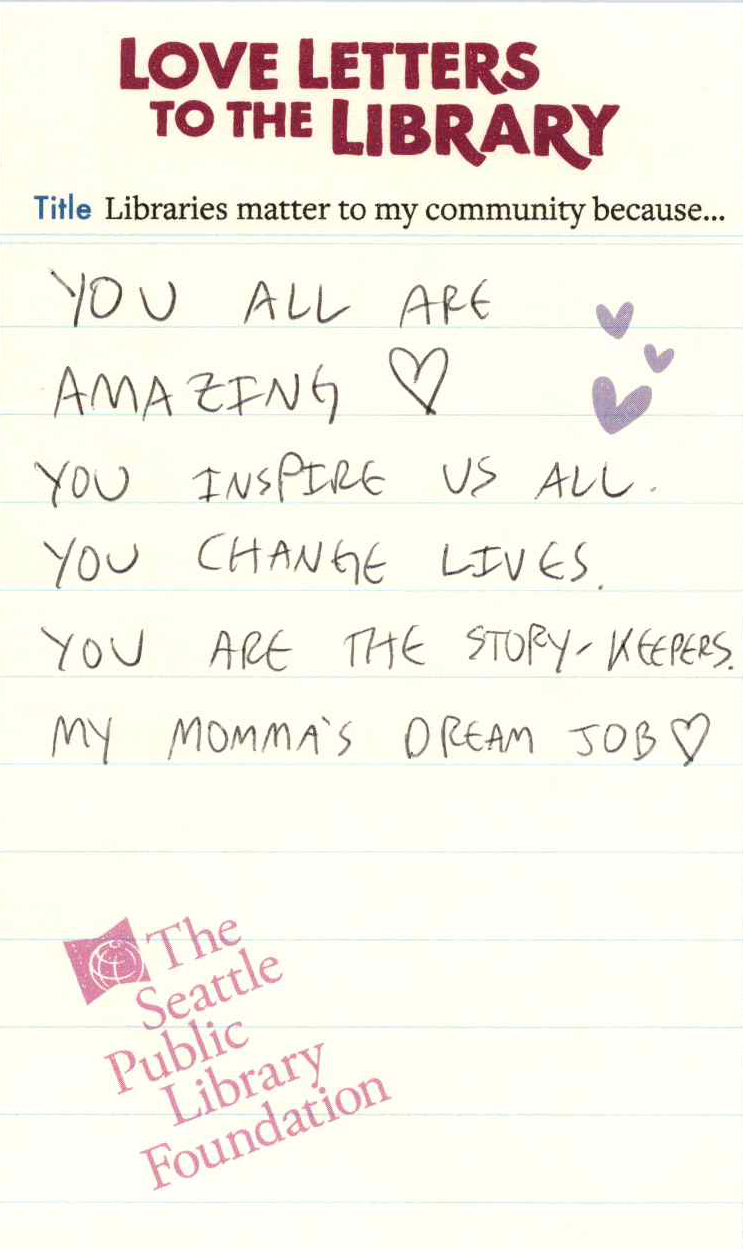 LOVE LETTERS
TO THE LIBRARY
Title Libraries matter to my community because...
YOU ALL ARE
AMAZING ♡
YOU INSPIRE US ALL.
YOU CHANGE LIVES.
YOU ARE THE STORY-KEEPERS.
MY MOMMA'S DREAM JOB♡
The
Seattle
Public
Library
Foundation